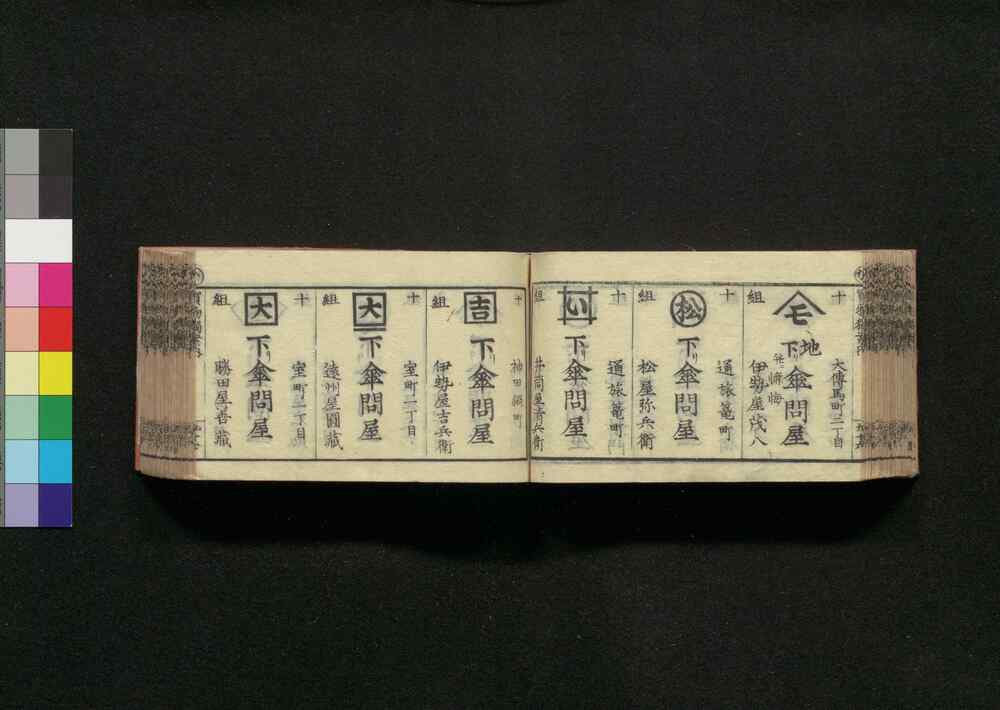 十組
大傳馬町二丁目
モ
地
下り傘問屋
伊勢屋茂八
十組
通旅篭町
松
下り傘問屋
松屋弥兵衛
十組
通旅篭町
い
下り傘問屋
井筒屋青兵衛
十組
神田鍋町
吉
下り傘問屋
伊勢屋吉兵衛
十組
室町一丁目
大
下り傘問屋
遠州屋圓蔵
十組
室町二丁目
大
下り傘問屋
勝田屋善蔵